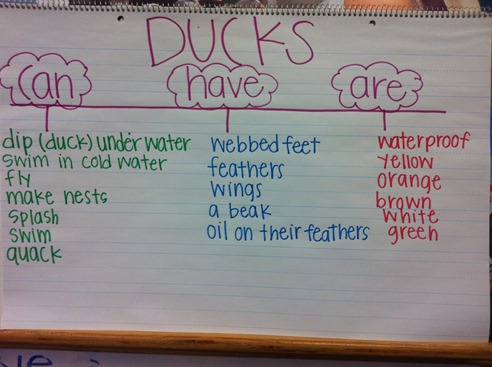 DUCKS
can
have
are
dip (duck) under water
swim in cold water
fly
make nests
splash
swim
quack
webbed feet
feathers
wings
a beak
oil on their feathers
waterproof
yellow
orange
brown
white
green